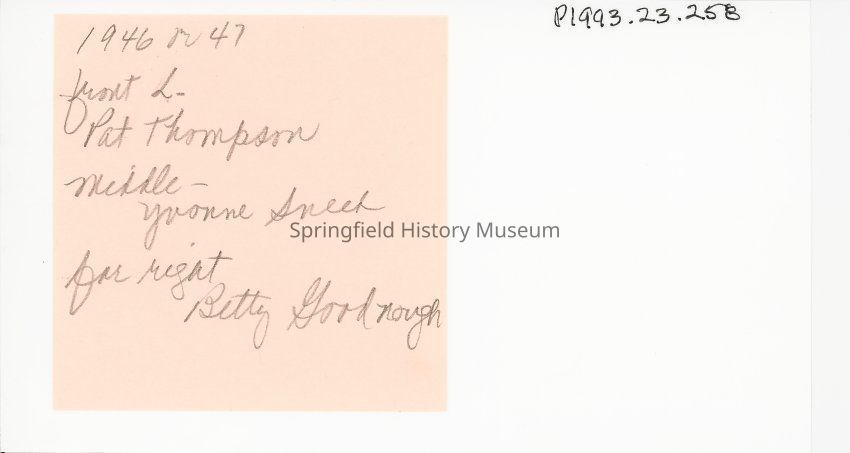 P1993.23.258
1946 or 47
front L-
Pat Thompson
middle -
Yvonne
Springfield History Museum
far right
Betty Goodnough